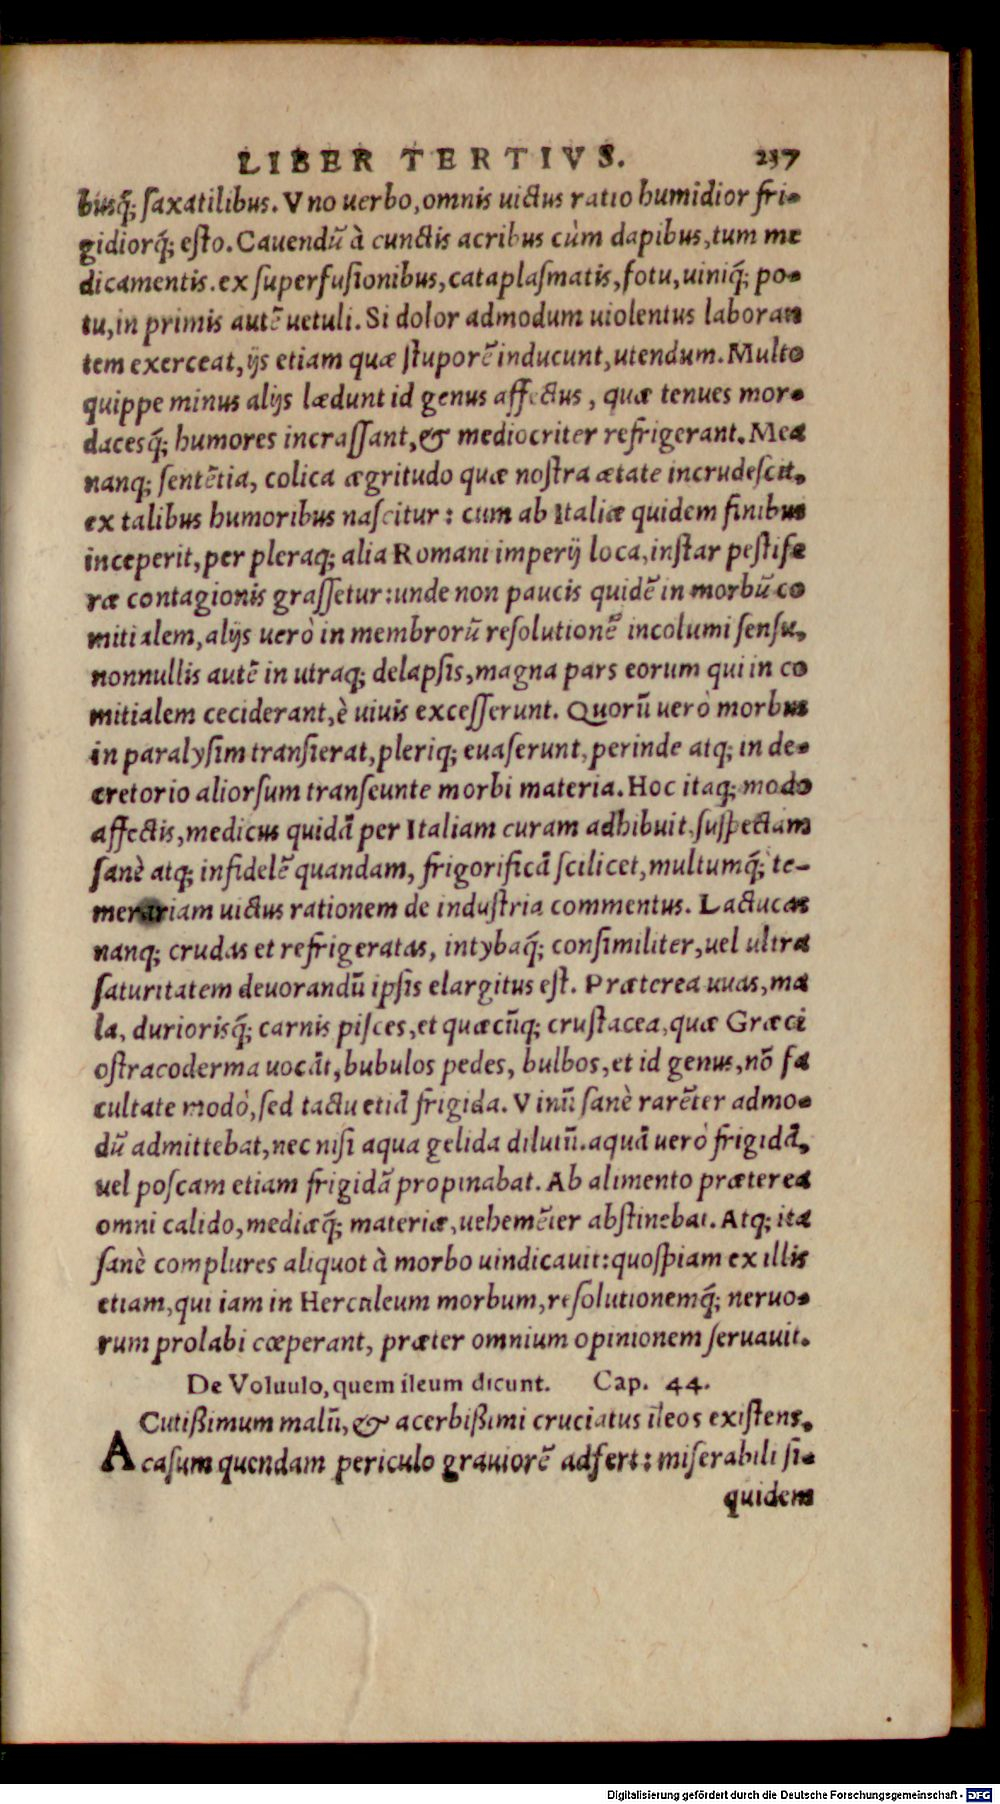 LIBER TERTIVS. 237
busq́; saxatilibus. Vno uerbo, omnis uictus ratio humidior fri-
gidiorq́; esto. Cauendũ à cunctis acribus cùm dapibus, tum me
dicamentis. ex superfusionibus, cataplasmatis, fotu, uiniq́; po-
tu, in primis autẽ uetuli. Si dolor admodum uiolentus laboran
tem exerceat, ijs etiam quæ stuporẽ inducunt, utendum. Multo
quippe minus alijs lædunt id genus affectus, quæ tenues mor-
dacesq́; humores incrassant, & mediocriter refrigerant. Mea
nanq; sentẽtia, colica ægritudo quæ nostra ætate incrudescit,
ex talibus humoribus nascitur: cum ab Italiæ quidem finibus
inceperit, per pleraq; alia Romani imperij loca, instar pestife
ræ contagionis grassetur: unde non paucis quidẽ in morbũ co
mitialem, alijs uerò in membrorũ resolutionẽ incolumi sensu,
nonnullis autẽ in utraq; delapsis, magna pars eorum qui in co
mitialem ceciderant, è uiuis excesserunt. Quorũ uerò morbus
in paralysim transierat, pleriq; euaserunt, perinde atq; in de-
cretorio aliorsum transeunte morbi materia. Hoc itaq; modo
affectis, medicus quidã per Italiam curam adhibuit, suspectam
sanè atq; infidelẽ quandam, frigorificã scilicet, multumq́; te-
merariam uictus rationem de industria commentus. Lactucas
nanq; crudas et refrigeratas, intybaq́; consimiliter, uel ultra
saturitatem deuorandũ ipsis elargitus est. Præterea uuas, ma
la, duriorisq́; carnis pisces, et quæcũq; crustacea, quæ Græci
ostracoderma uocãt, bubulos pedes, bulbos, et id genus, nõ fa
cultate modò, sed tactu etiã frigida. Vinũ sanè rarẽter admo-
dũ admittebat, nec nisi aqua gelida dilutũ. aquã uerò frigidã,
uel poscam etiam frigidã propinabat. Ab alimento præterea
omni calido, mediæq́; materiæ, uehemẽter abstinebat. Atq; ita
sanè complures aliquot à morbo uindicauit: quospiam ex illis
etiam, qui iam in Herculeum morbum, resolutionemq́; neruo-
rum prolabi cœperant, præter omnium opinionem seruauit.
De Voluulo, quem ileum dicunt. Cap. 44.
ACutißimum malũ, & acerbißimi cruciatus ileos existens,
casum quendam periculo grauiorẽ adfert: miserabili si-
quidem
Digitalisierung gefördert durch die Deutsche Forschungsgemeinschaft - DFG